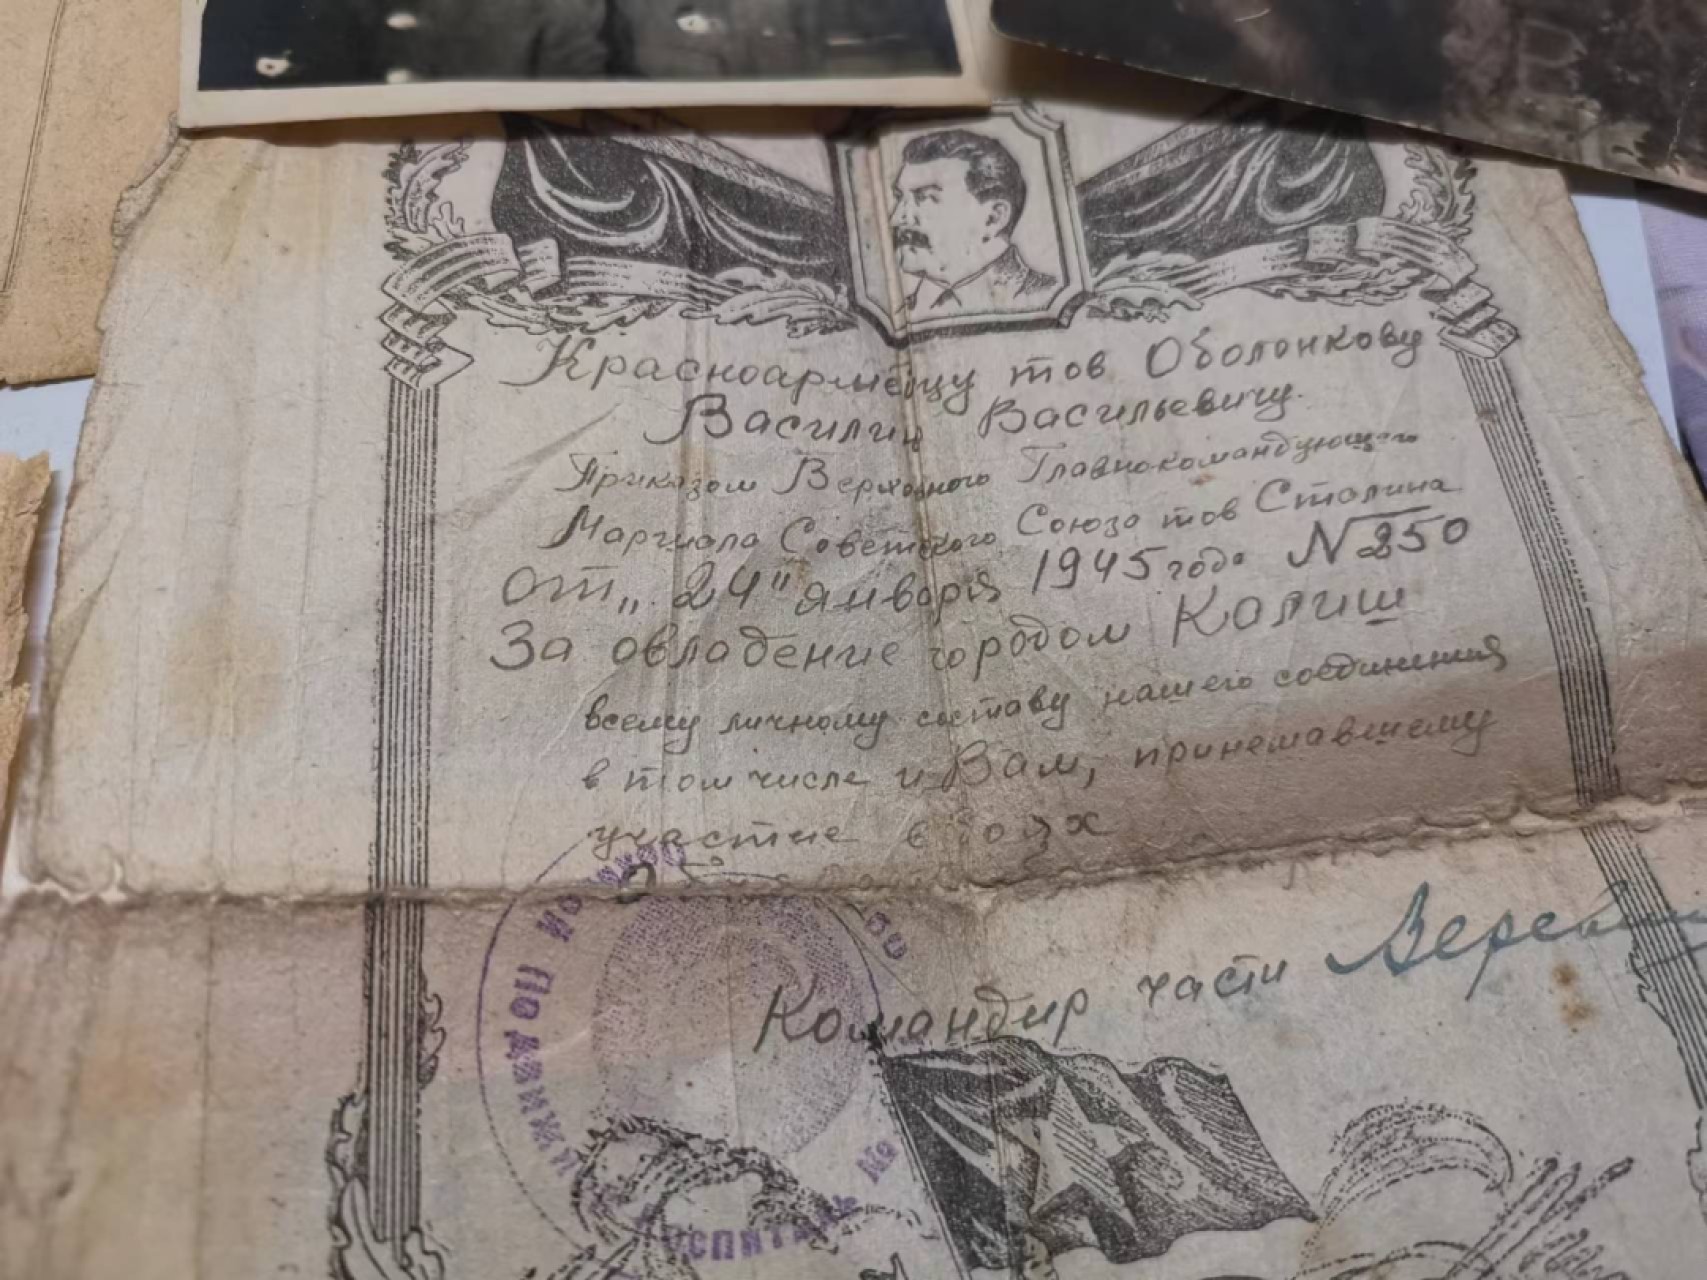 Красноармейцу тов Оболонкову
Василию Васильевичу.
Приказом Верховного Главнокомандующего
Маршала Советского Союза тов Сталина
от „24" января 1945 года №250
За овладение городом Калиш
всему личному составу нашего соединения
в том числе и Вам, принемавшему
участие в боях
Командир части
Подвижной
госпиталь №